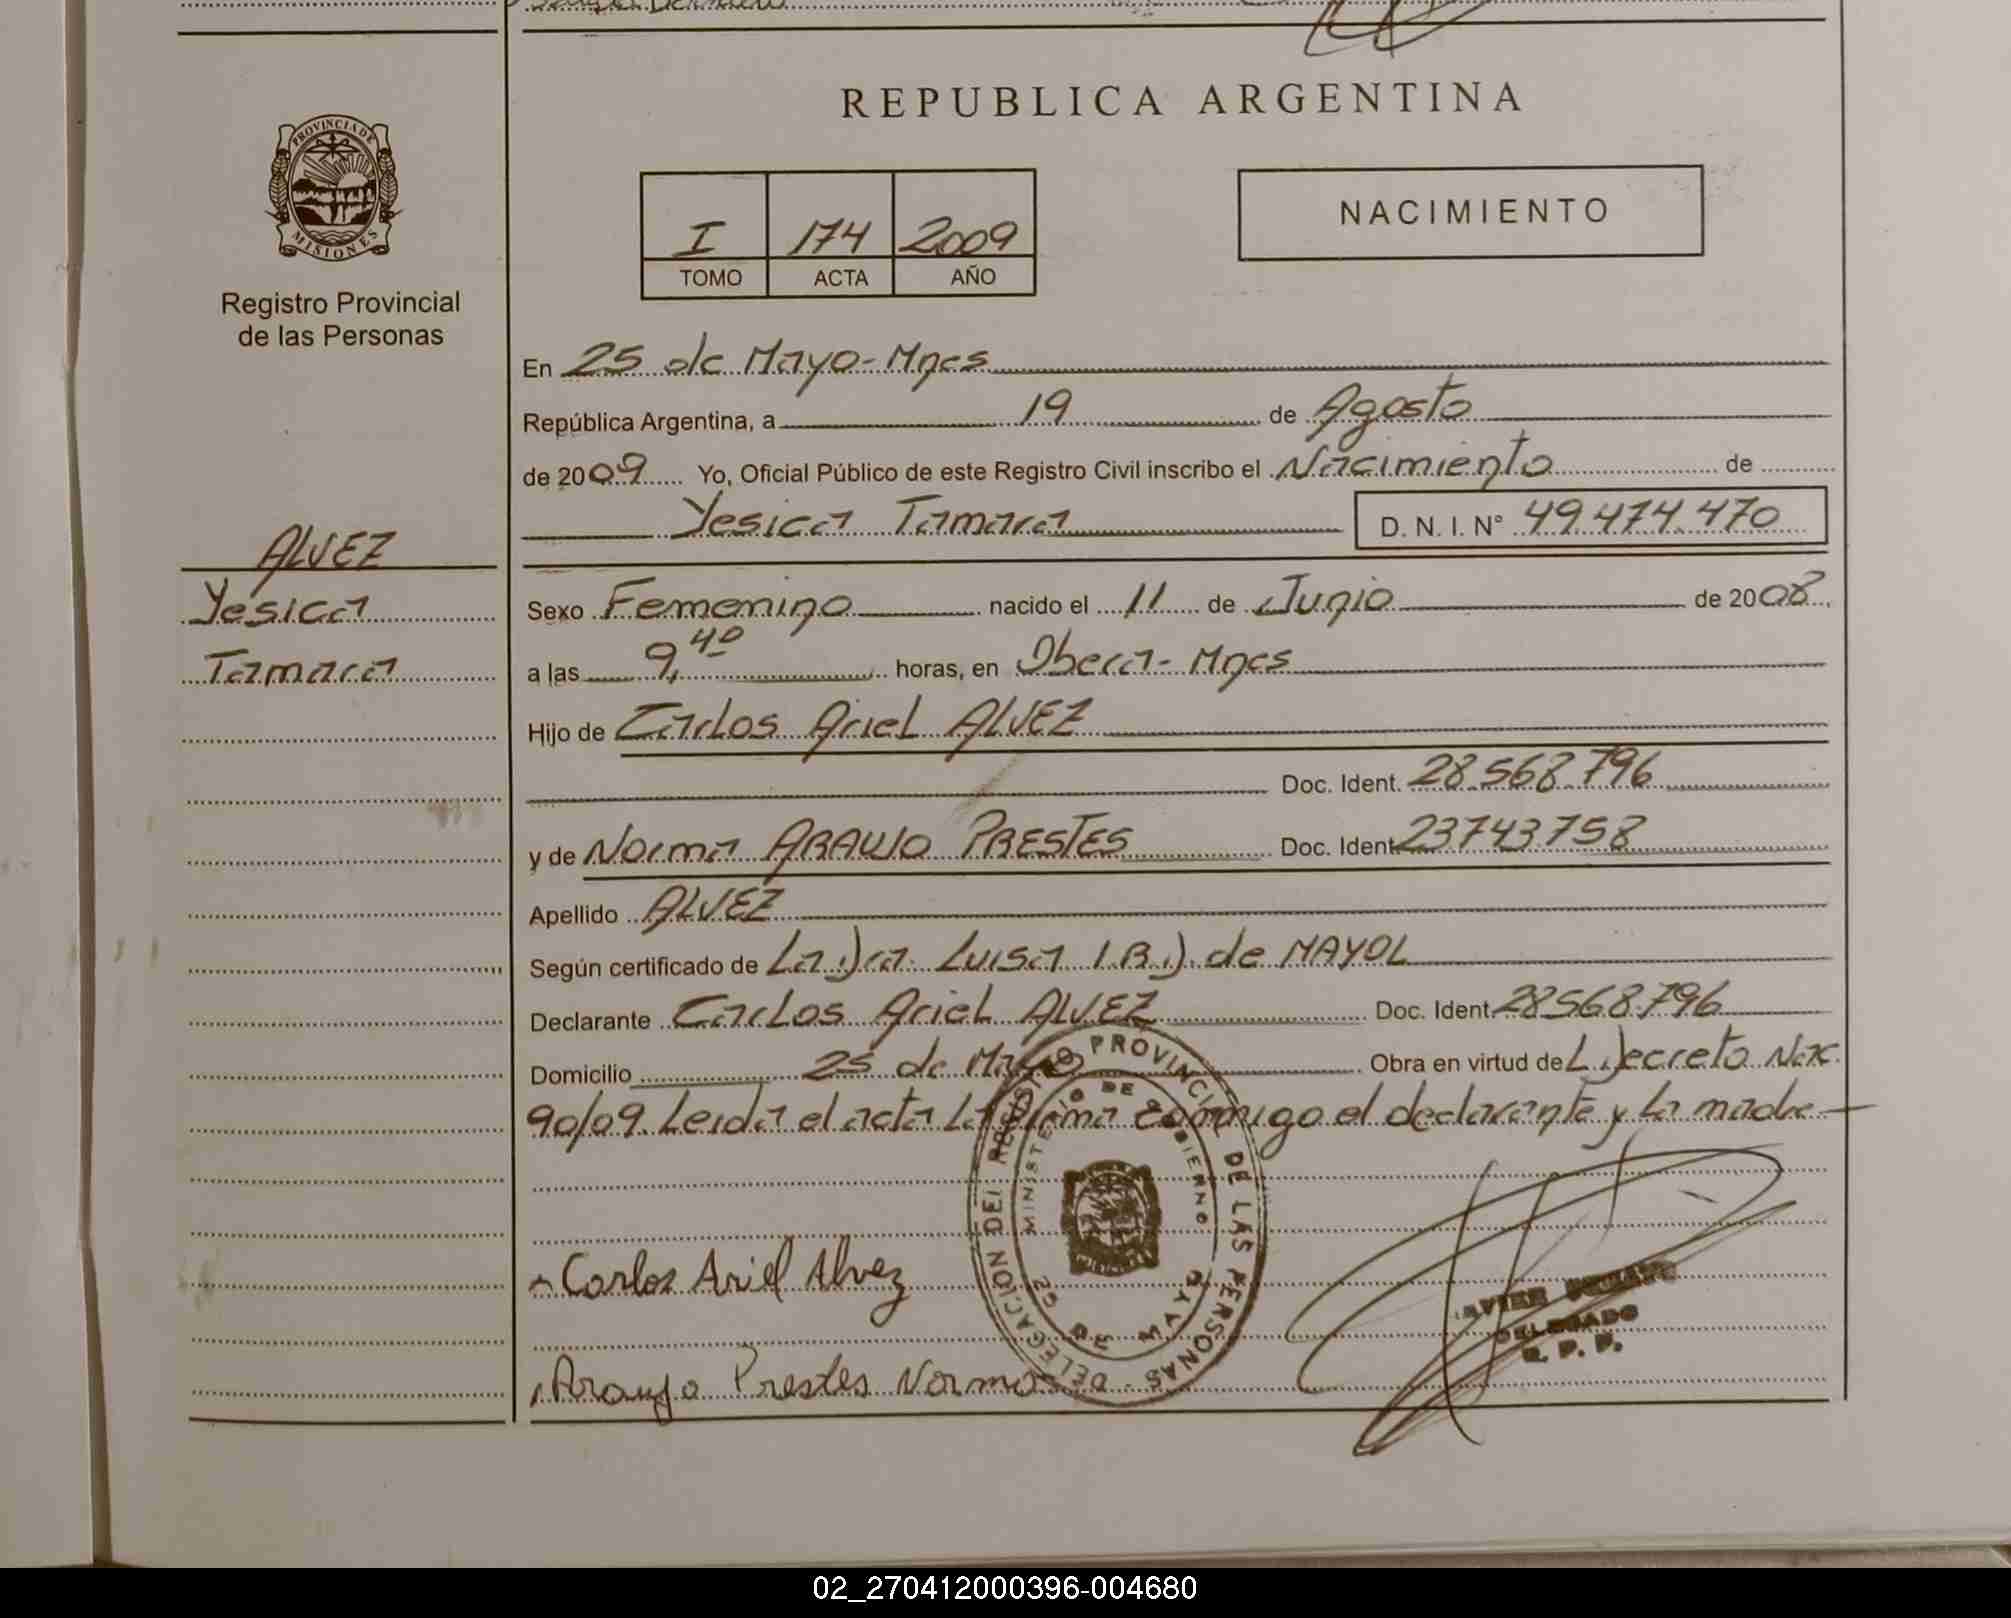 PROVINCIA DE
MISIONES
Registro Provincial
de las Personas
ALVEZ
Yesica
Tamara
REPUBLICA ARGENTINA
I 174 2009
TOMO ACTA AÑO
NACIMIENTO
En 25 de Mayo-Mnes
República Argentina, a 19 de Agosto
de 2009 Yo, Oficial Público de este Registro Civil inscribo el Nacimiento de
Yesica Tamara D. N. I. N° 49.474.470
Sexo Femenino nacido el 11 de Junio de 2008
a las 9,40 horas, en Obera- Mnes
Hijo de Carlos Ariel ALVEZ
Doc. Ident. 28.568.796
y de Norma ARAUJO PRESTES Doc. Ident. 23743758
Apellido ALVEZ
Según certificado de La Dra. Luisa I.B.D. de MAYOL
Declarante Carlos Ariel ALVEZ Doc. Ident. 28568.796
Domicilio 25 de Mayo Obra en virtud del Decreto Nac.
90/09. Leida el acta La firma conmigo el declarante y La madre
DELEGACION DEL REGISTRO PROVINCIAL DE LAS PERSONAS
MINISTERIO DE GOBIERNO
25 DE MAYO
Carlos Ariel Alvez
Araujo Prestes Norma
DELEGADO
R. P. P.
02_270412000396-004680